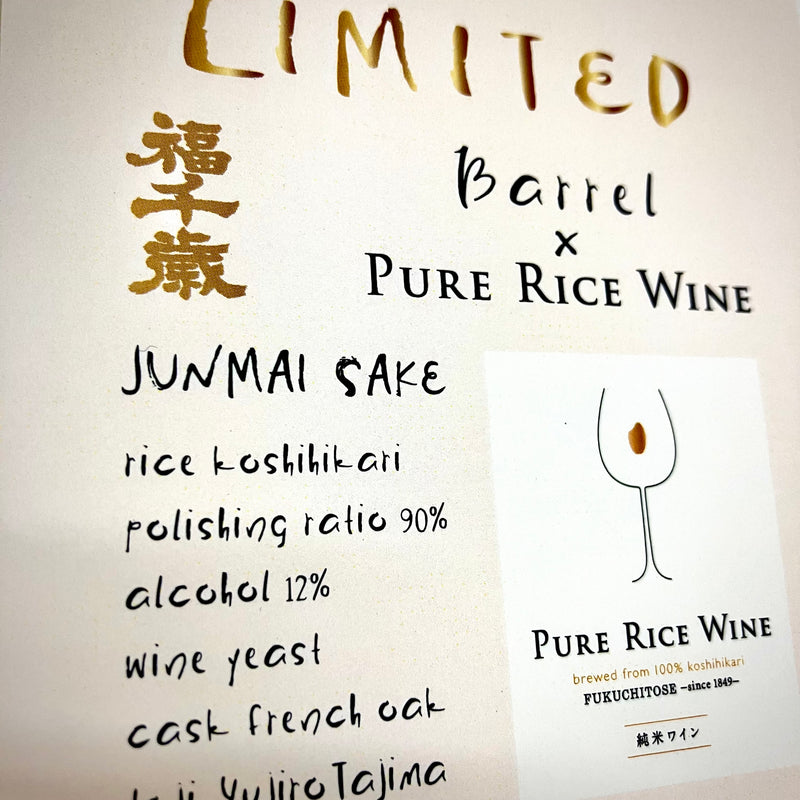 LIMITED
福千歳
Barrel
x
PURE RICE WINE
JUNMAI SAKE
rice koshihikari
polishing ratio 90%
alcohol 12%
wine yeast
cask french oak
Yujiro Tajima
PURE RICE WINE
brewed from 100% koshihikari
FUKUCHITOSE –since 1849–
純米ワイン